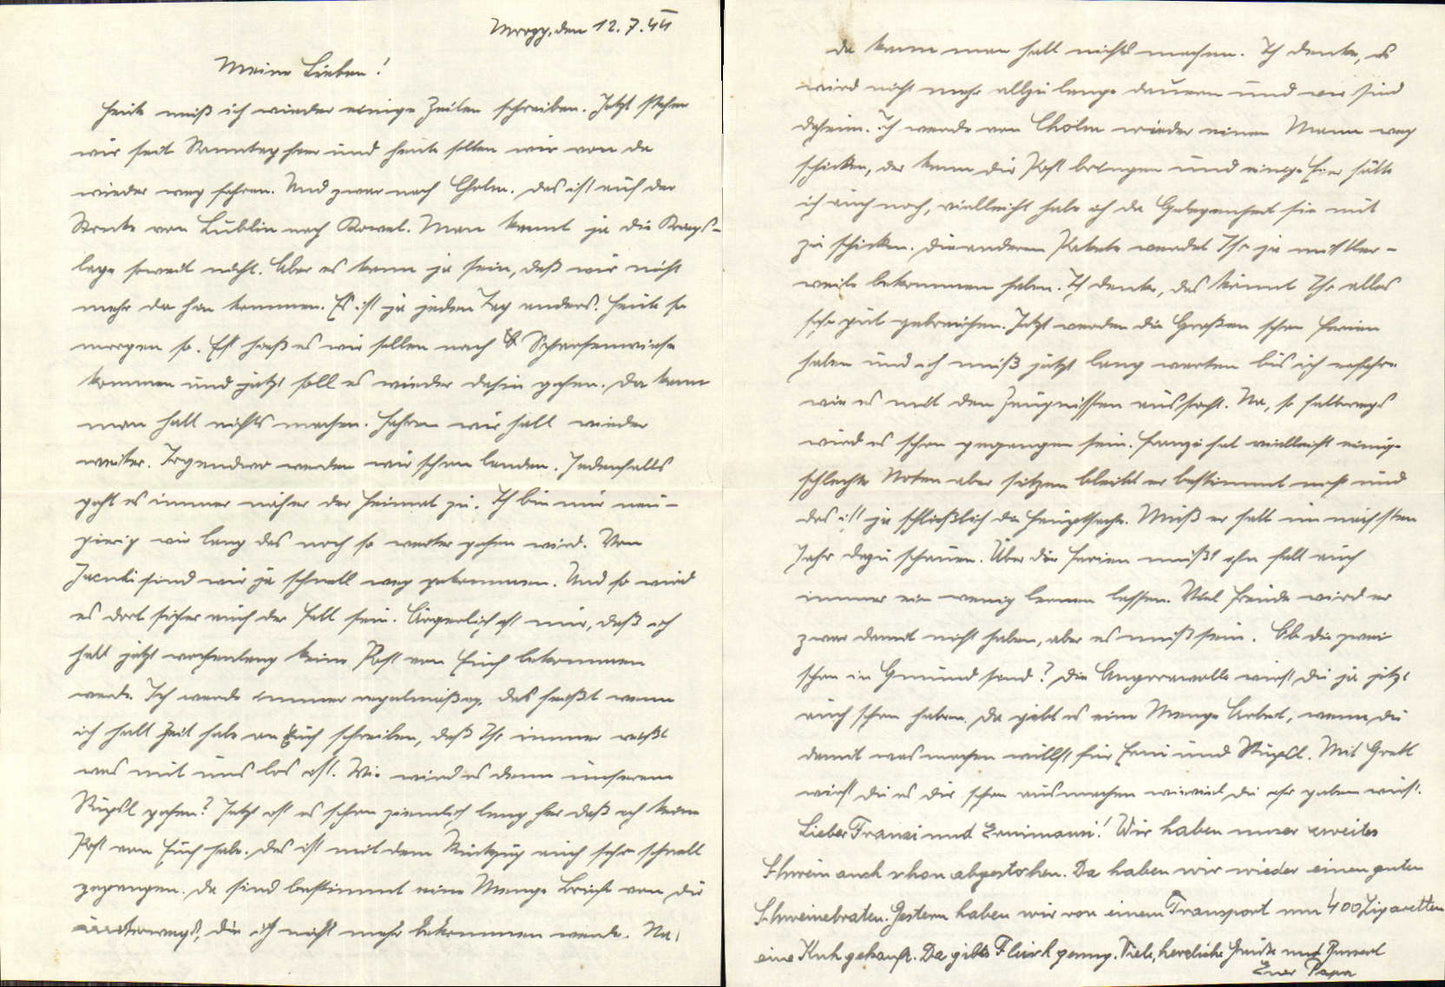 den 12.7.44
Meine Lieben!
Heute muß ich wieder einige Zeilen schreiben. Jetzt stehen
wir seit Sonntag hier und heute sollen wir von da
wieder weg fahren. Und zwar nach Cholm. Das ist auf der
Strecke von Lublin nach Kowel. Man kennt ja die Kriegs-
lage soweit nicht. Aber es kann ja sein, daß wir nicht
mehr da hin kommen. Es ist ja jeden Tag anders. Heute so
morgen so. Erst hieß es wir sollen nach Scharfenwiese
kommen und jetzt soll es wieder dahin gehen. Da kann
man halt nichts machen. Fahren wir halt wieder
weiter. Irgendwo werden wir schon landen. Jedenfalls
geht es immer näher der Heimat zu. Ich bin nur neu-
gierig wie lang das noch so weiter gehen wird. Von
sind wir ja schnell weg gekommen. Und so wird
es dort sicher auch der Fall sein. Ärgerlich ist nur, daß ich
halt jetzt wochenlang keine Post von Euch bekommen
werde. Ich werde immer regelmäßig, das heißt wenn
ich halt Zeit habe an Euch schreiben, daß Ihr immer wißt
was mit uns los ist. Wie wird es denn unserem
Stupsl gehen? Jetzt ist es schon ziemlich lang her daß ich keine
Post von Euch habe. Das ist mit dem Rückzug auch sehr schnell
gegangen. Da sind bestimmt eine Menge Briefe von Dir
unterwegs, die ich nicht mehr bekommen werde. Na,
da kann man halt nichts machen. Ich denke, es
wird nicht mehr allzu lange dauern und wir sind
daheim. Ich werde von Cholm wieder einen Mann weg
schicken, der kann die Post bringen und einige Eier hätte
ich auch noch, vielleicht habe ich da Gelegenheit sie mit
zu schicken. Die anderen Pakete werdet Ihr ja mittler-
weile bekommen haben. Ich denke, das könnt Ihr alles
sehr gut gebrauchen. Jetzt werden die Großen schon Ferien
haben und ich muß jetzt lang warten bis ich erfahre
wie es mit den Zeugnissen aussieht. Na, so halbwegs
wird es schon gegangen sein. Franzi hat vielleicht einige
schlechte Noten aber sitzen bleibt er bestimmt nicht und
das ist ja schließlich die Hauptsache. Muß er halt im nächsten
Jahr dazu schauen. Über die Ferien mußt ihn halt auch
immer ein wenig lernen lassen. Viel Freude wird er
zwar damit nicht haben, aber es muß sein. Ob die zwei
schon in Gmünd sind? Die Angorawolle wirst Du ja jetzt
auch schon haben. Da gibt es eine Menge Arbeit, wenn Du
damit was machen willst für Erni und Stupsl. Mit Gretl
wirst Du es Dir schon ausmachen wieviel Du ihr geben wirst.
Lieber Franzi und Ernimami! Wir haben unser zweites
Schwein auch schon abgestochen. Da haben wir wieder einen guten
Schweinebraten. Gestern haben wir von einem Transport um 400 Zigaretten
eine Kuh gekauft. Da gibts Fleisch genug. Viele, herzliche Grüße und Bussel
Euer Papa